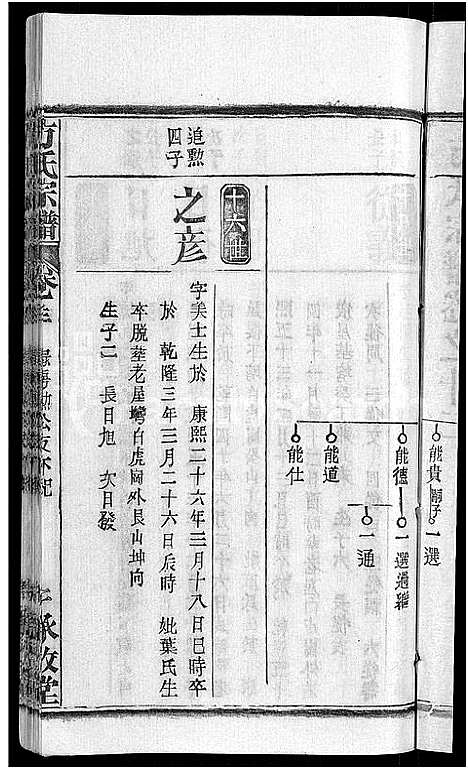 能貴 嗣子 一選
能德 一選過繼
一通
能道
能仕
十六世
追勲四子
之彦
字美士生於 康熙二十六年三月十八日巳時卒
於 乾隆三年三月二十六日辰時 妣葉氏生
卒脱塟老屋塆白虎岡外艮山坤向
生子二 長日旭 次日發
方氏宗譜
卷之三
承啟堂